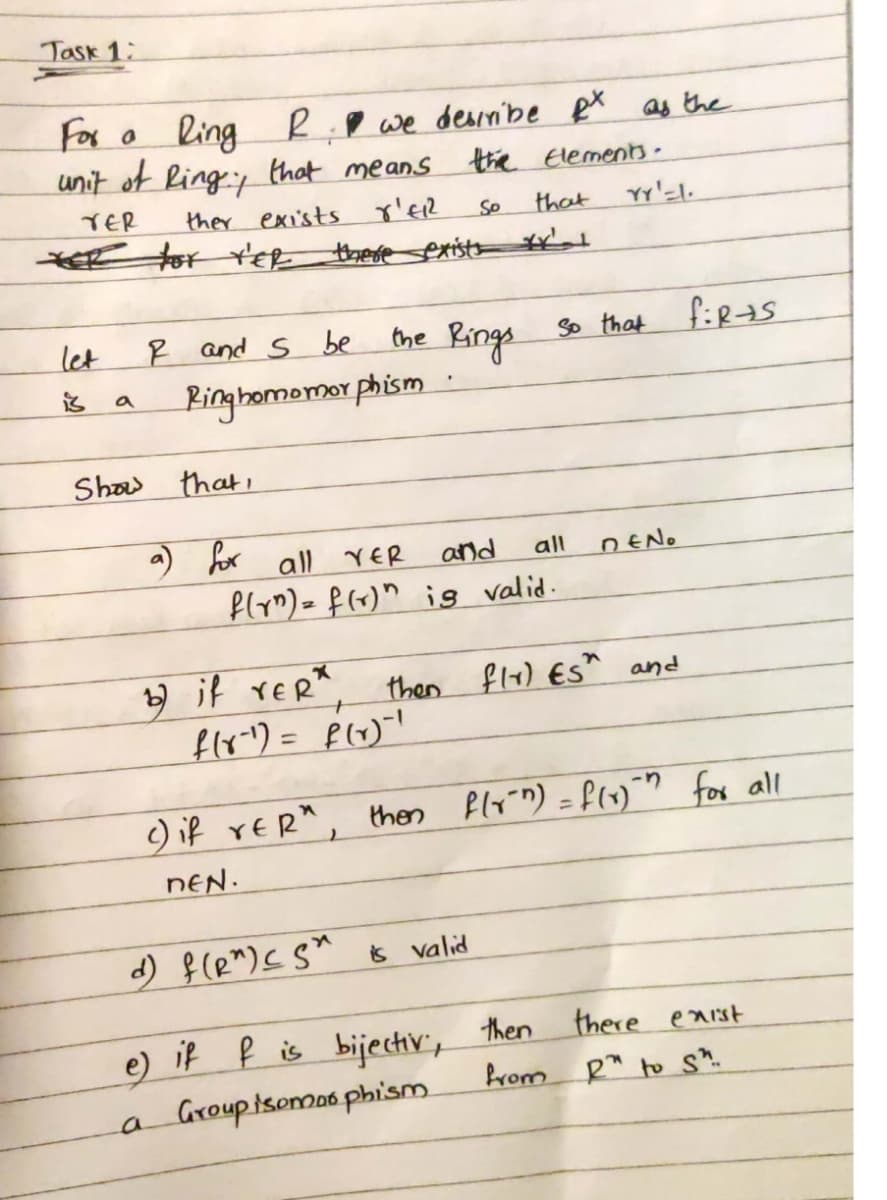 Task 1:
For a Ring R : we desinibe Rˣ as the
unit of Ring:, that means the Elements.
rER ther exists r'ER so that rr'=1.
rER for r'ER there exists rr'=1
let R and S be the Rings so that f:R→S
is a Ringhomomorphism.
Show that,
a) for all r∈R and all n∈N₀
f(rⁿ) = f(r)ⁿ is valid.
b) if r∈Rˣ, then f(r) ∈Sˣ and
f(r⁻¹) = f(r)⁻¹
c) if r∈Rˣ, then f(r⁻ⁿ) = f(r)⁻ⁿ for all
n∈N.
d) f(Rˣ)⊆ Sˣ is valid
e) if f is bijectiv, then there exist
a Groupisomoophism from Rˣ to Sˣ..